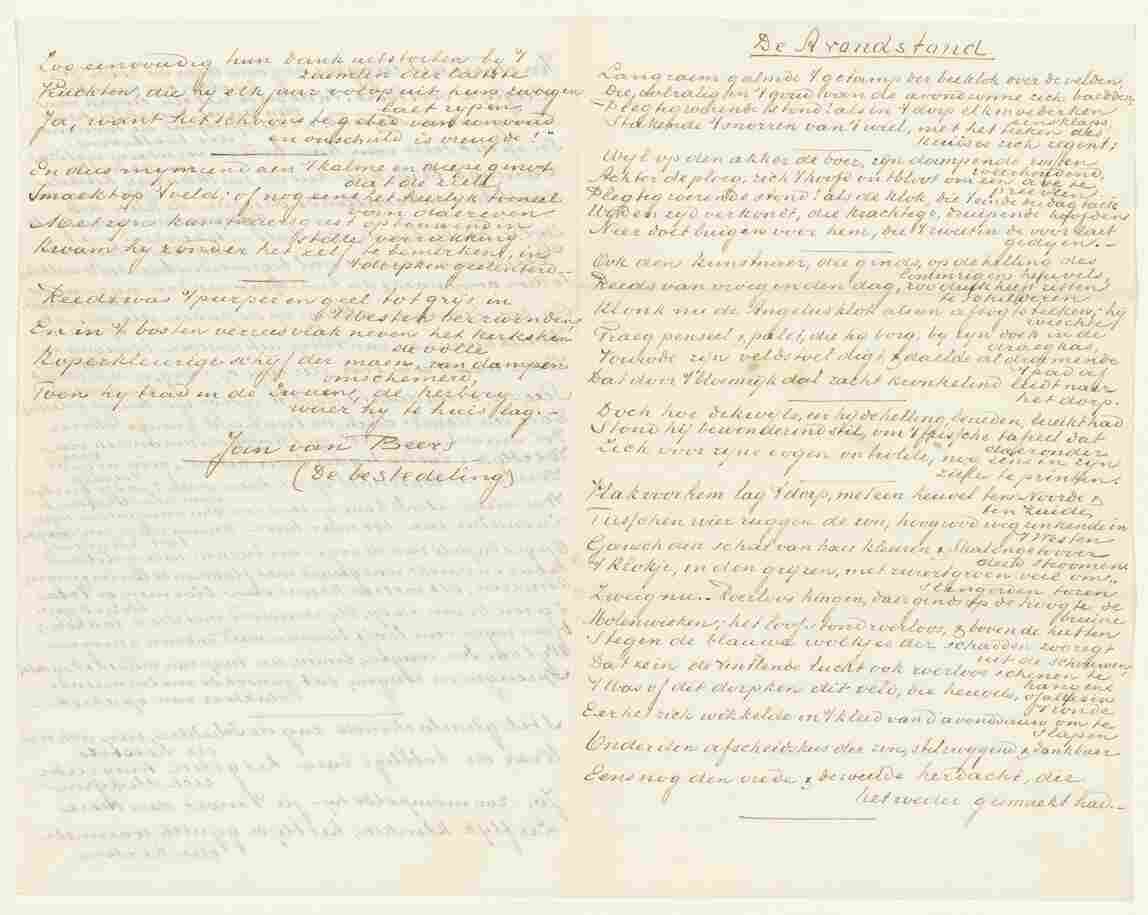 Zoo eenvoudig hun dank uitstorten by 't
zaemlen der laetste
Vruchten, die hy elk jaer volop uit hun zwoegen
laet rypen.
Ja, want het schoonste gebed van eenvoud
en onschuld is vreugde!"
En dus mymrend aen 't kalme en diepe genot
dat de ziele
Smaekt op 't veld; of nog eens het heerlyk tooneel
van daereven
Met zyn kunstnaersgeest optoovrend in
stille verrukking
Kwam hy zonder het zelf te bemerken, in
't dorpken geslenterd.—
Reeds was 't purper en geel tot grys in
't Westen verzwonden
En in 't oosten verrees vlak neven het kerksken
de volle
Koperkleurige schyf der maen, van dampen
omschemerd,
Toen hy trad in de Zwaen, de herberg
waer hy te huis lag.—
Jan van Beers
(De bestedeling)
De Avondstond
Langzaem galmde 't geklamp der beeklok over de velden
Die, dalralign 't goud van de avondzonne zich baedden
Plegtig roerende stond! als in 't dorp elk moederken
eensklaps
Stakende 't snorren van 't wiel, met het teeken des
kruises zich zegent;
Wyl op den akker de boer, zyn dampende rossen
weerhoudend,
Achter de ploeg, zich 't hoofd ontbloot om een ave te
prevelen
Plegtig roerende stond! als de klok, die 't einde der dagtaek
Wyd en zyd verkondt, die krachtige, druipende hoofden
Neer doet buigen voor hem, die 't zaet in de voor laet
gedyen.—
Ook den kunstnaer, die ginds, op de helling des
lommrigen heuvels,
Reeds van vroeg in den dag, zoo druk had zitten
te schilderen
Klonk nu de Angelusklok als een aftogtsteeken; hy
wischte
Traeg penseel & palet, die hy borg, by zyn doek in de
draegkas,
Vouwde zyn veldstoel digt, & daelde al droomende
't pad af
Dat door 't bloemryk dal zacht kronkelend leidt naer
het dorp.
Doch hoe dikwyls, en hy de helling, beneden, bereikt had
Stond hy bewonderend stil, om 't frissche tafreel dat
daeronder
Zich voor zyne oogen ontrolde, nog eens in zyn
zielse te printen.
Vlak voor hem lag 't dorp, met een heuvel ten Noorde &
ten Zuide,
Tusschen wier ruggen de zon, hoogrood wegzinkende in
't Westen
Gansch den schat van haer kleuren & stralengetoover
deed stroomen.
't Klokje, in den gryzen, met zwartgroen veil om-
slangerden toren
Zweig nu.— Roerloos hingen, daerginds op de hoogte de
bruine
Molenwieken; het loof stond roerloos, & boven de hutten
Stegen de blauwe wolkjes der schadden zoo regt
uit de schouwen
Dat ze in de tintlende lucht ook roerloos schenen te
hangen
't Was of dit dorpken dit veld, die heuvels, of alles in
't ronde
Eer het zich wikkelde in 't kleed van d'avonddauw om te
slapen
Onder den afscheidskus der zon, stilzwygend & dankbaer
Eens nog den vrede & de weelde herdacht, die
het weder gesmaekt had.—